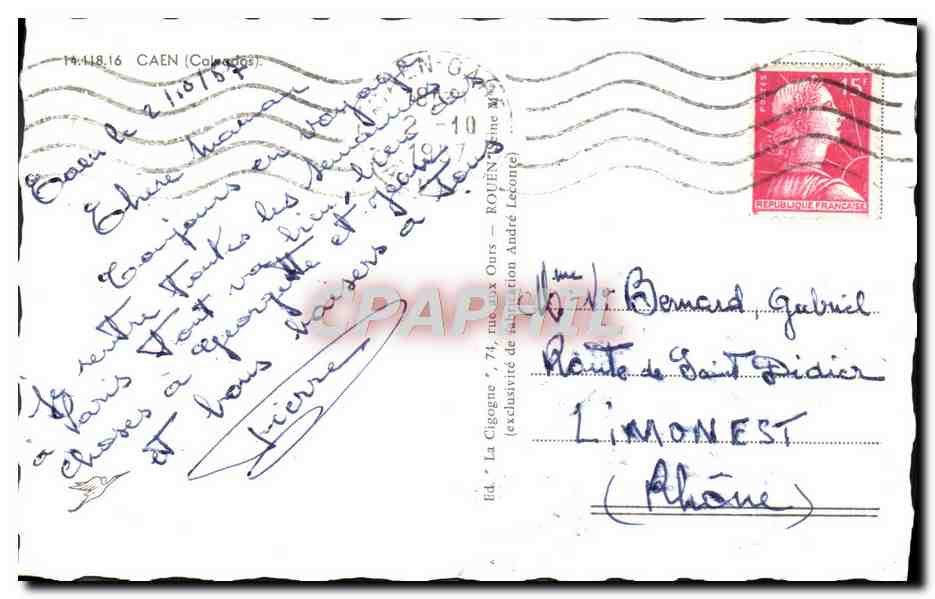 14.118.16 CAEN (Calvados).
Caen le 2/10/57
Chère Maman
Toujours en voyage
Je rentre toutes les semaines
à Paris tout va bien, bien des
choses à Georgette et
et bons baisers à tous
Pierre
CAEN-GARE
2 -10
1957
POSTES
15F
REPUBLIQUE FRANÇAISE
Ed. "La Cigogne", 74, rue aux Ours — ROUEN (Seine Mme)
(exclusivité de fabrication André Leconte)
CPAPHIL
Mme Vve Bernard, Gabriel
Route de Saint Didier
LIMONEST
(Rhône)